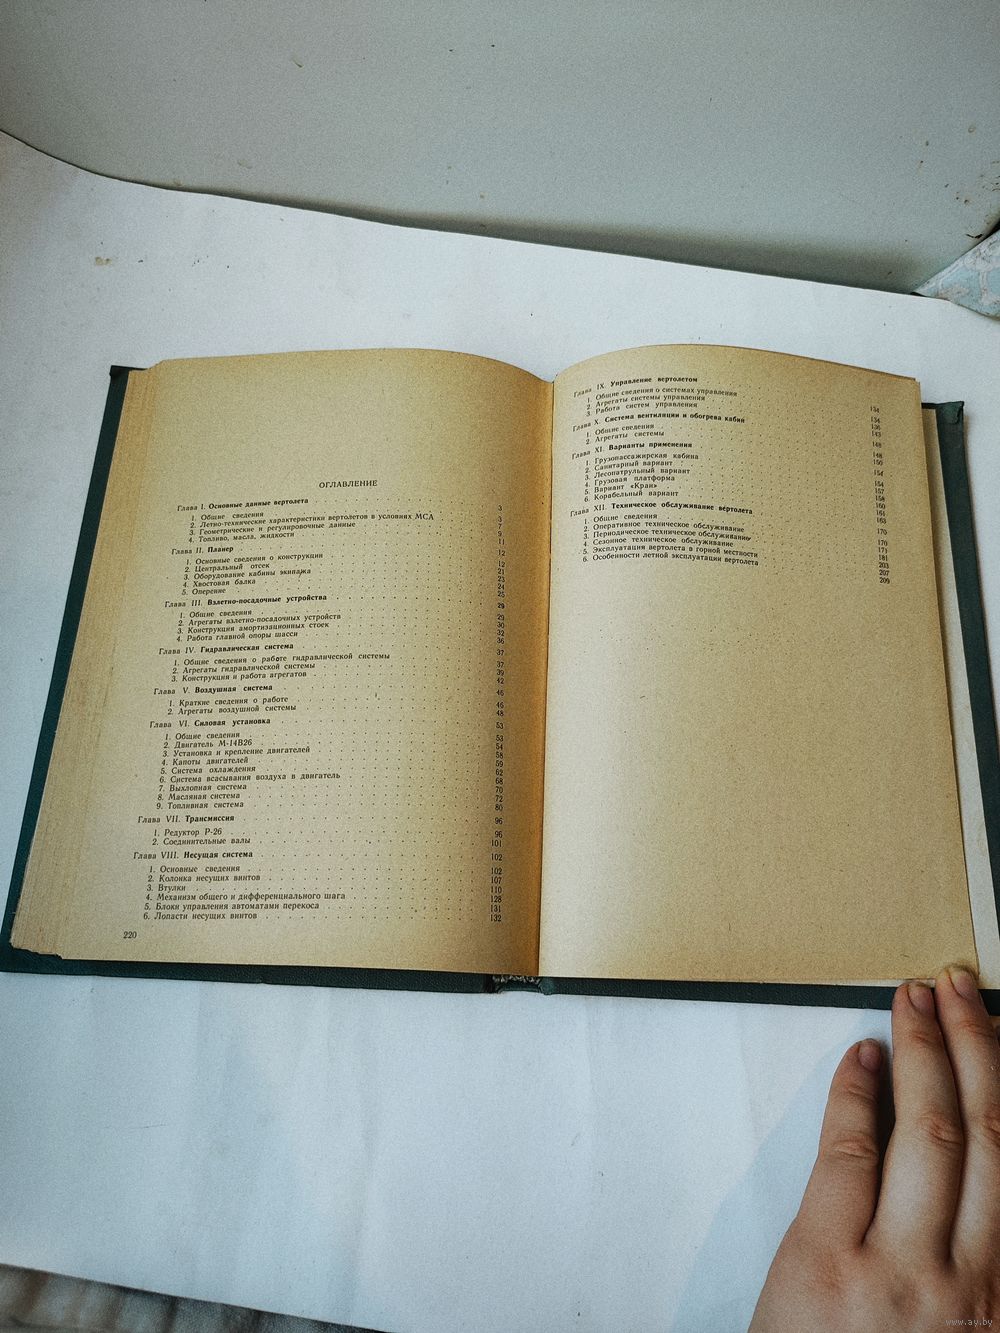 ОГЛАВЛЕНИЕ
Глава I. Основные данные вертолета 3
1. Общие сведения 3
2. Летно-технические характеристики вертолетов в условиях МСА 7
3. Геометрические и регулировочные данные 9
4. Топливо, масла, жидкости 11
Глава II. Планер 12
1. Основные сведения о конструкции 12
2. Центральный отсек 21
3. Оборудование кабины экипажа 23
4. Хвостовая балка 24
5. Оперение 25
Глава III. Взлетно-посадочные устройства 29
1. Общие сведения 29
2. Агрегаты взлетно-посадочных устройств 30
3. Конструкция амортизационных стоек 32
4. Работа главной опоры шасси 36
Глава IV. Гидравлическая система 37
1. Общие сведения о работе гидравлической системы 37
2. Агрегаты гидравлической системы 39
3. Конструкция и работа агрегатов 42
Глава V. Воздушная система 46
1. Краткие сведения о работе 46
2. Агрегаты воздушной системы 48
Глава VI. Силовая установка 53
1. Общие сведения 53
2. Двигатель М-14В26 54
3. Установка и крепление двигателей 58
4. Капоты двигателей 59
5. Система охлаждения 62
6. Система всасывания воздуха в двигатель 68
7. Выхлопная система 70
8. Масляная система 72
9. Топливная система 80
Глава VII. Трансмиссия 96
1. Редуктор Р-26 96
2. Соединительные валы 101
Глава VIII. Несущая система 102
1. Основные сведения 102
2. Колонка несущих винтов 107
3. Втулки 110
4. Механизм общего и дифференциального шага 128
5. Блоки управления автоматами перекоса 131
6. Лопасти несущих винтов 132
220
Глава IX. Управление вертолетом 134
1. Общие сведения о системах управления 134
2. Агрегаты системы управления 136
3. Работа систем управления 143
Глава X. Система вентиляции и обогрева кабин 148
1. Общие сведения 148
2. Агрегаты системы 150
Глава XI. Варианты применения 154
1. Грузопассажирская кабина 154
2. Санитарный вариант 157
3. Лесопатрульный вариант 158
4. Грузовая платформа 160
5. Вариант «Кран» 161
6. Корабельный вариант 163
Глава XII. Техническое обслуживание вертолета 170
1. Общие сведения 170
2. Оперативное техническое обслуживание 171
3. Периодическое техническое обслуживание 181
4. Сезонное техническое обслуживание 203
5. Эксплуатация вертолета в горной местности 207
6. Особенности летной эксплуатации вертолета 209
www.ay.by